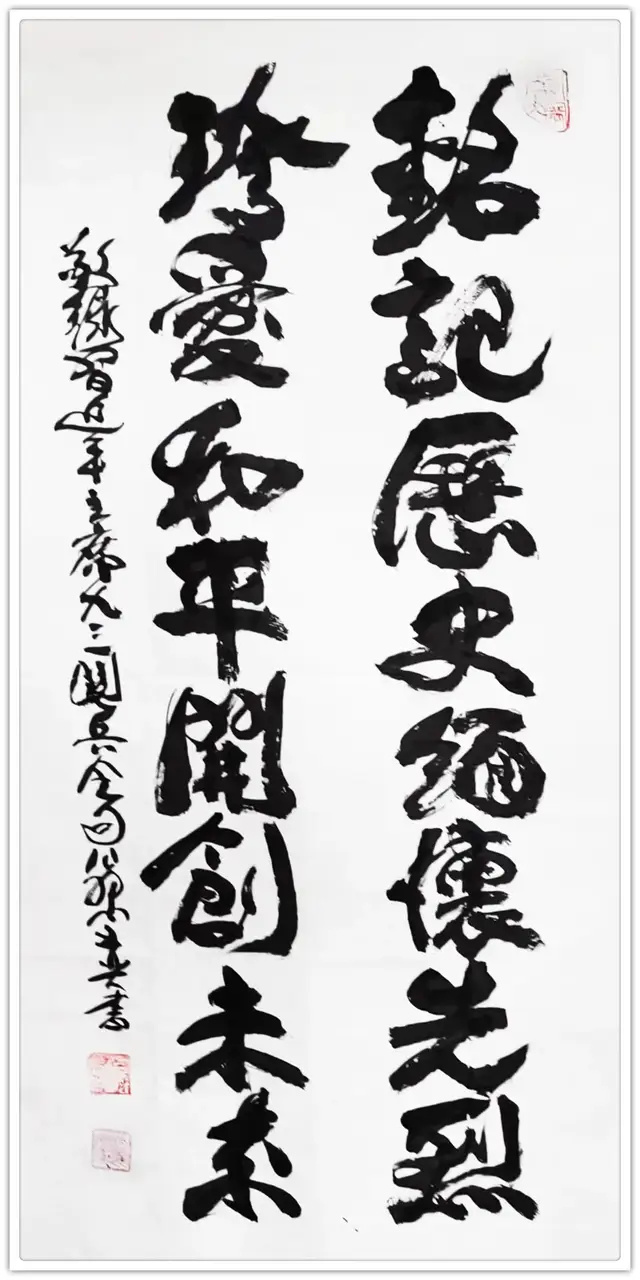 銘記歷史緬懷先烈
珍愛和平開創未来
敬录習近平主席九三閱兵金句
書